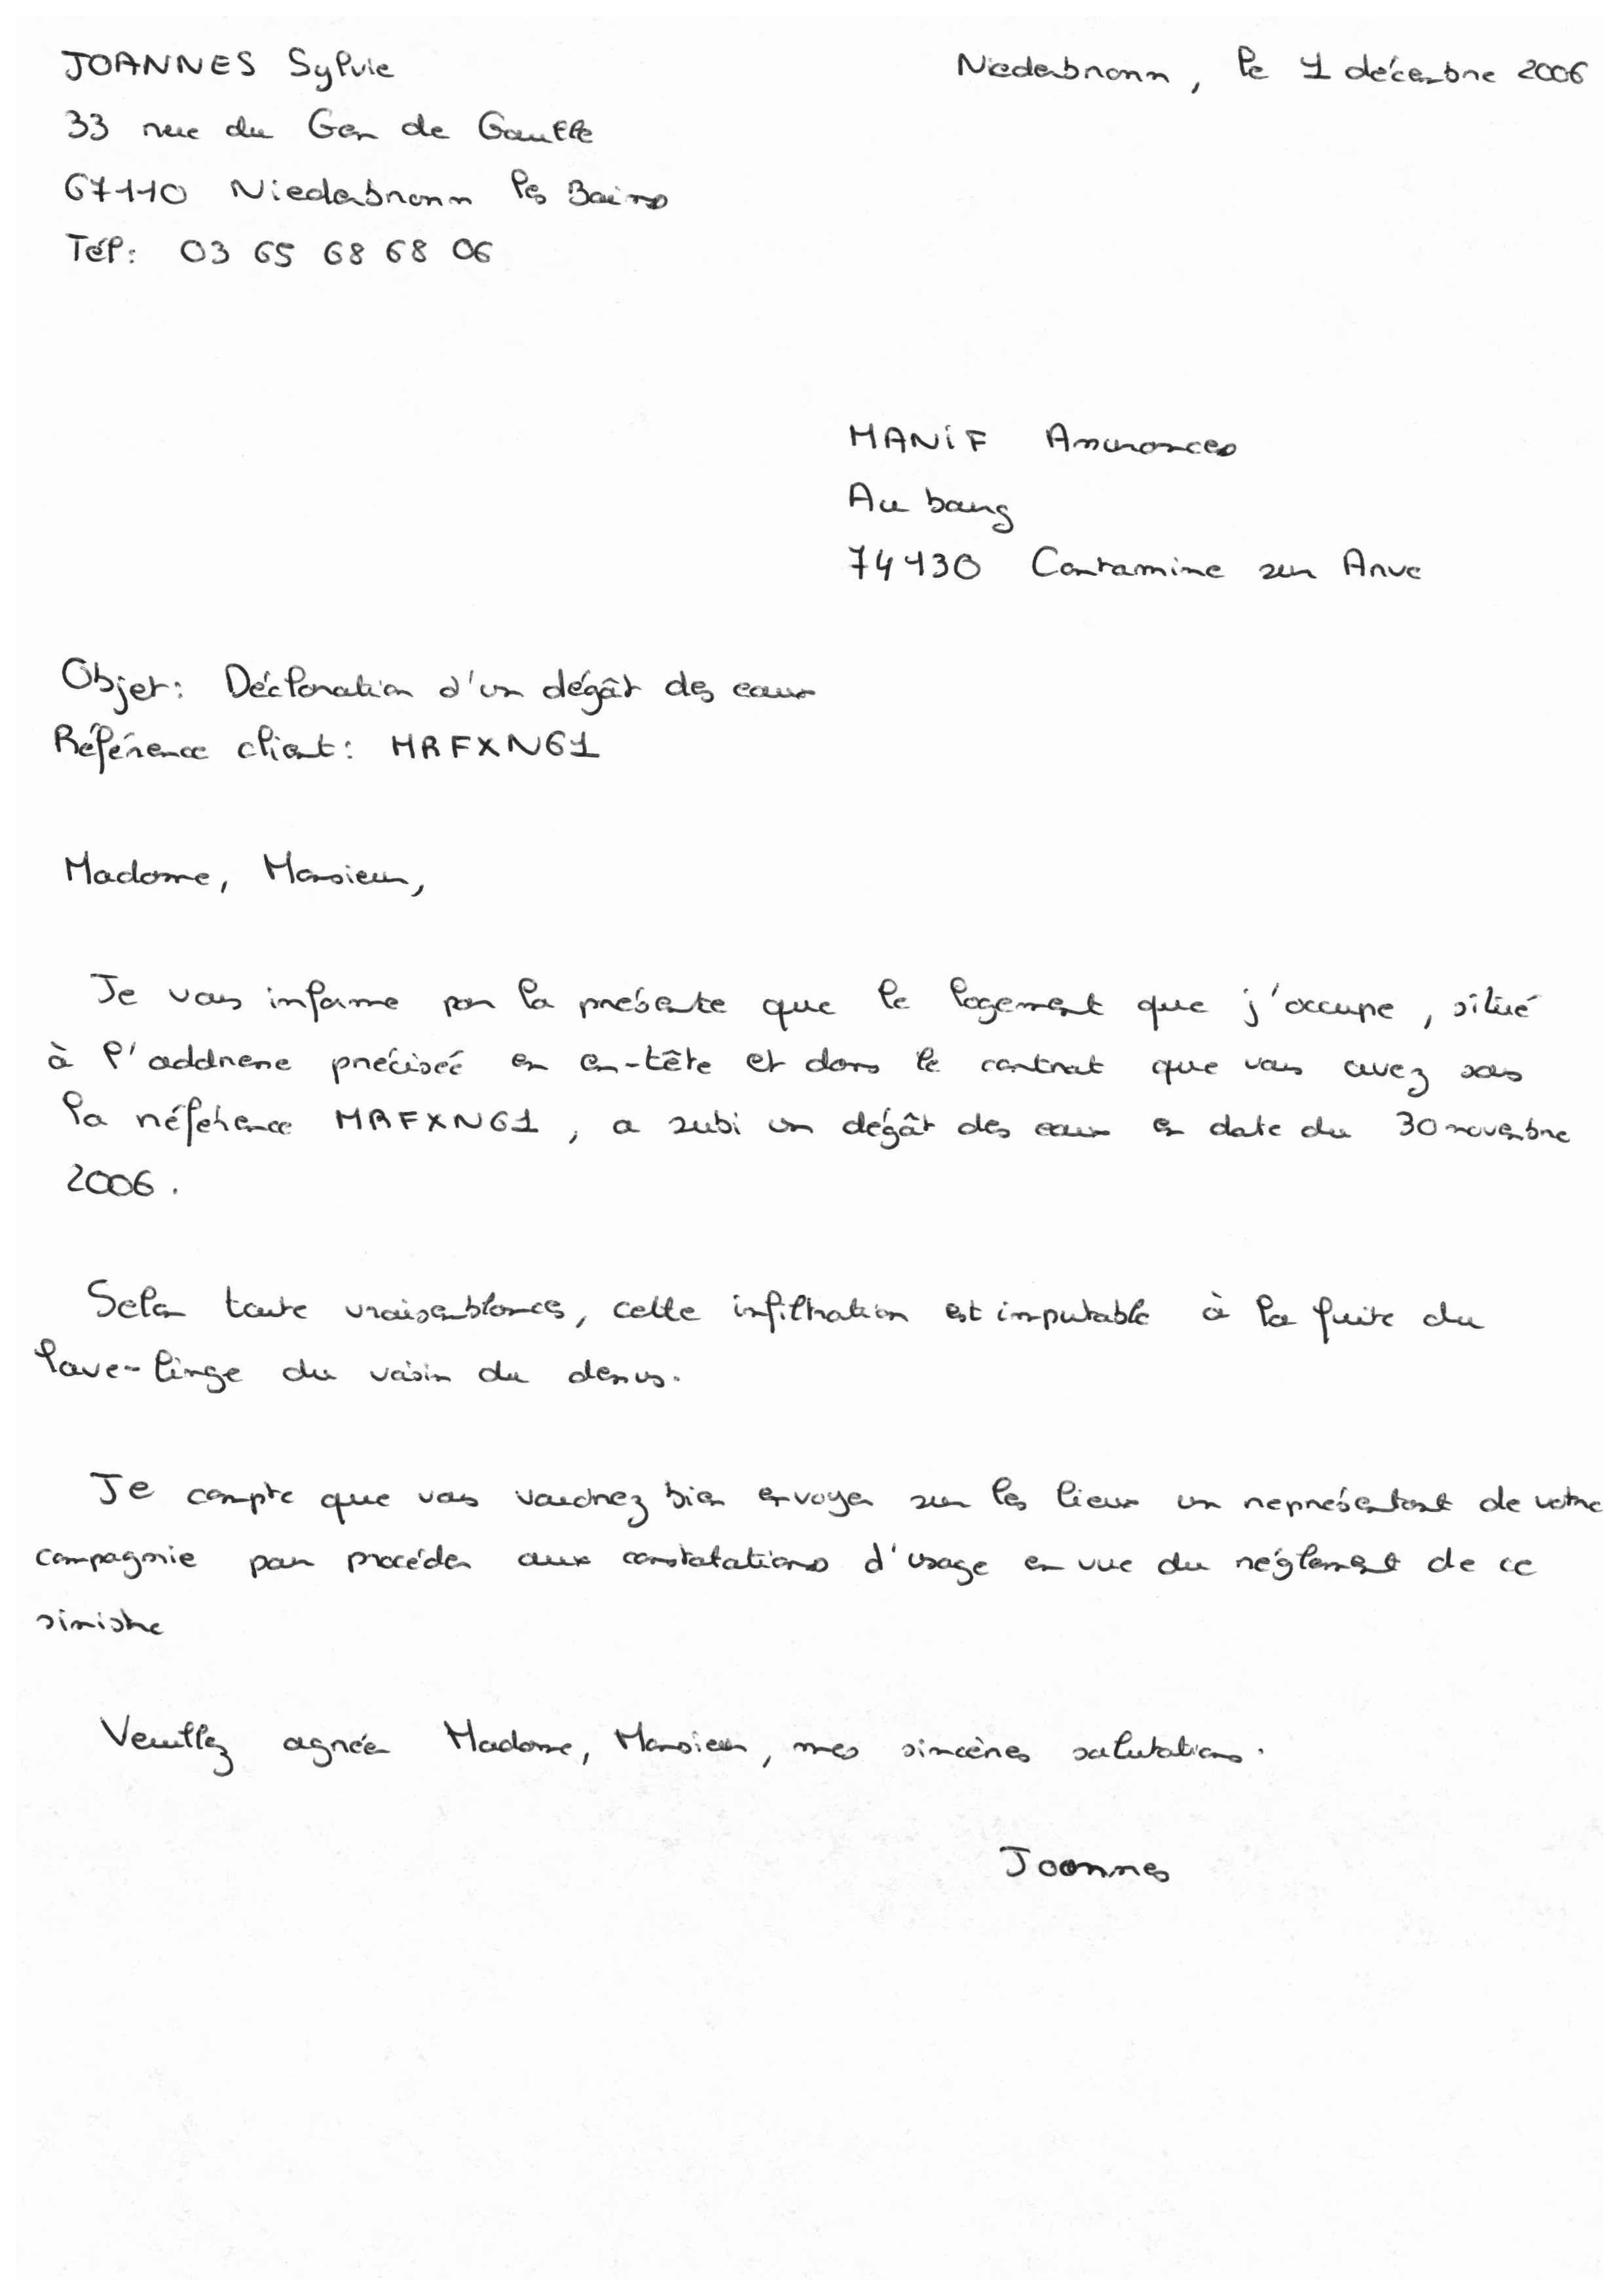 JOANNES Sylvie
Niederbronn, le 1 décembre 2006
33 rue du Gen de Gaulle
67110 Niederbronn les Bains
Tél: 03 65 68 68 06
MANIF Assurances
Au bourg
74130 Contamine sur Arve
Objet: Déclaration d'un dégât des eaux
Référence client: MRFXN61
Madame, Monsieur,
Je vous informe par la présente que le logement que j'occupe, situé
à l'addresse précisée en en-tête et dans le contrat que vous avez sous
la référence MRFXN61, a subi un dégât des eaux en date du 30 novembre
2006.
Selon toute vraisemblances, cette infiltration est imputable à la fuite du
lave-linge du voisin du dessus.
Je compte que vous voudrez bien envoyer sur les lieux un représentant de votre
compagnie pour procéder aux constatations d'usage en vue du réglement de ce
sinistre
Veuillez agréer Madame, Monsieur, mes sincères salutations.
Joannes